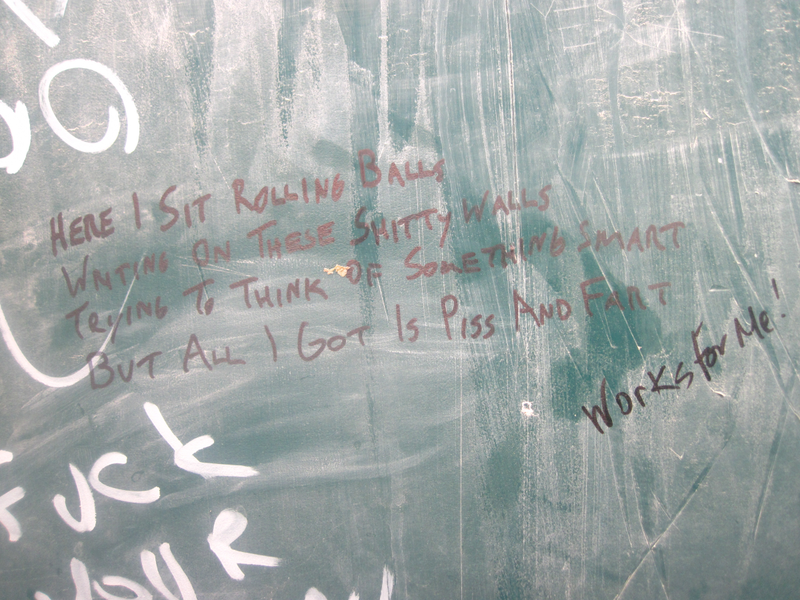 HERE I SIT ROLLING BALLS
WRITING ON THESE SHITTY WALLS
TRYING TO THINK OF SOMETHING SMART
BUT ALL I GOT IS PISS AND FART
Works For Me!
FUCK
YOUR